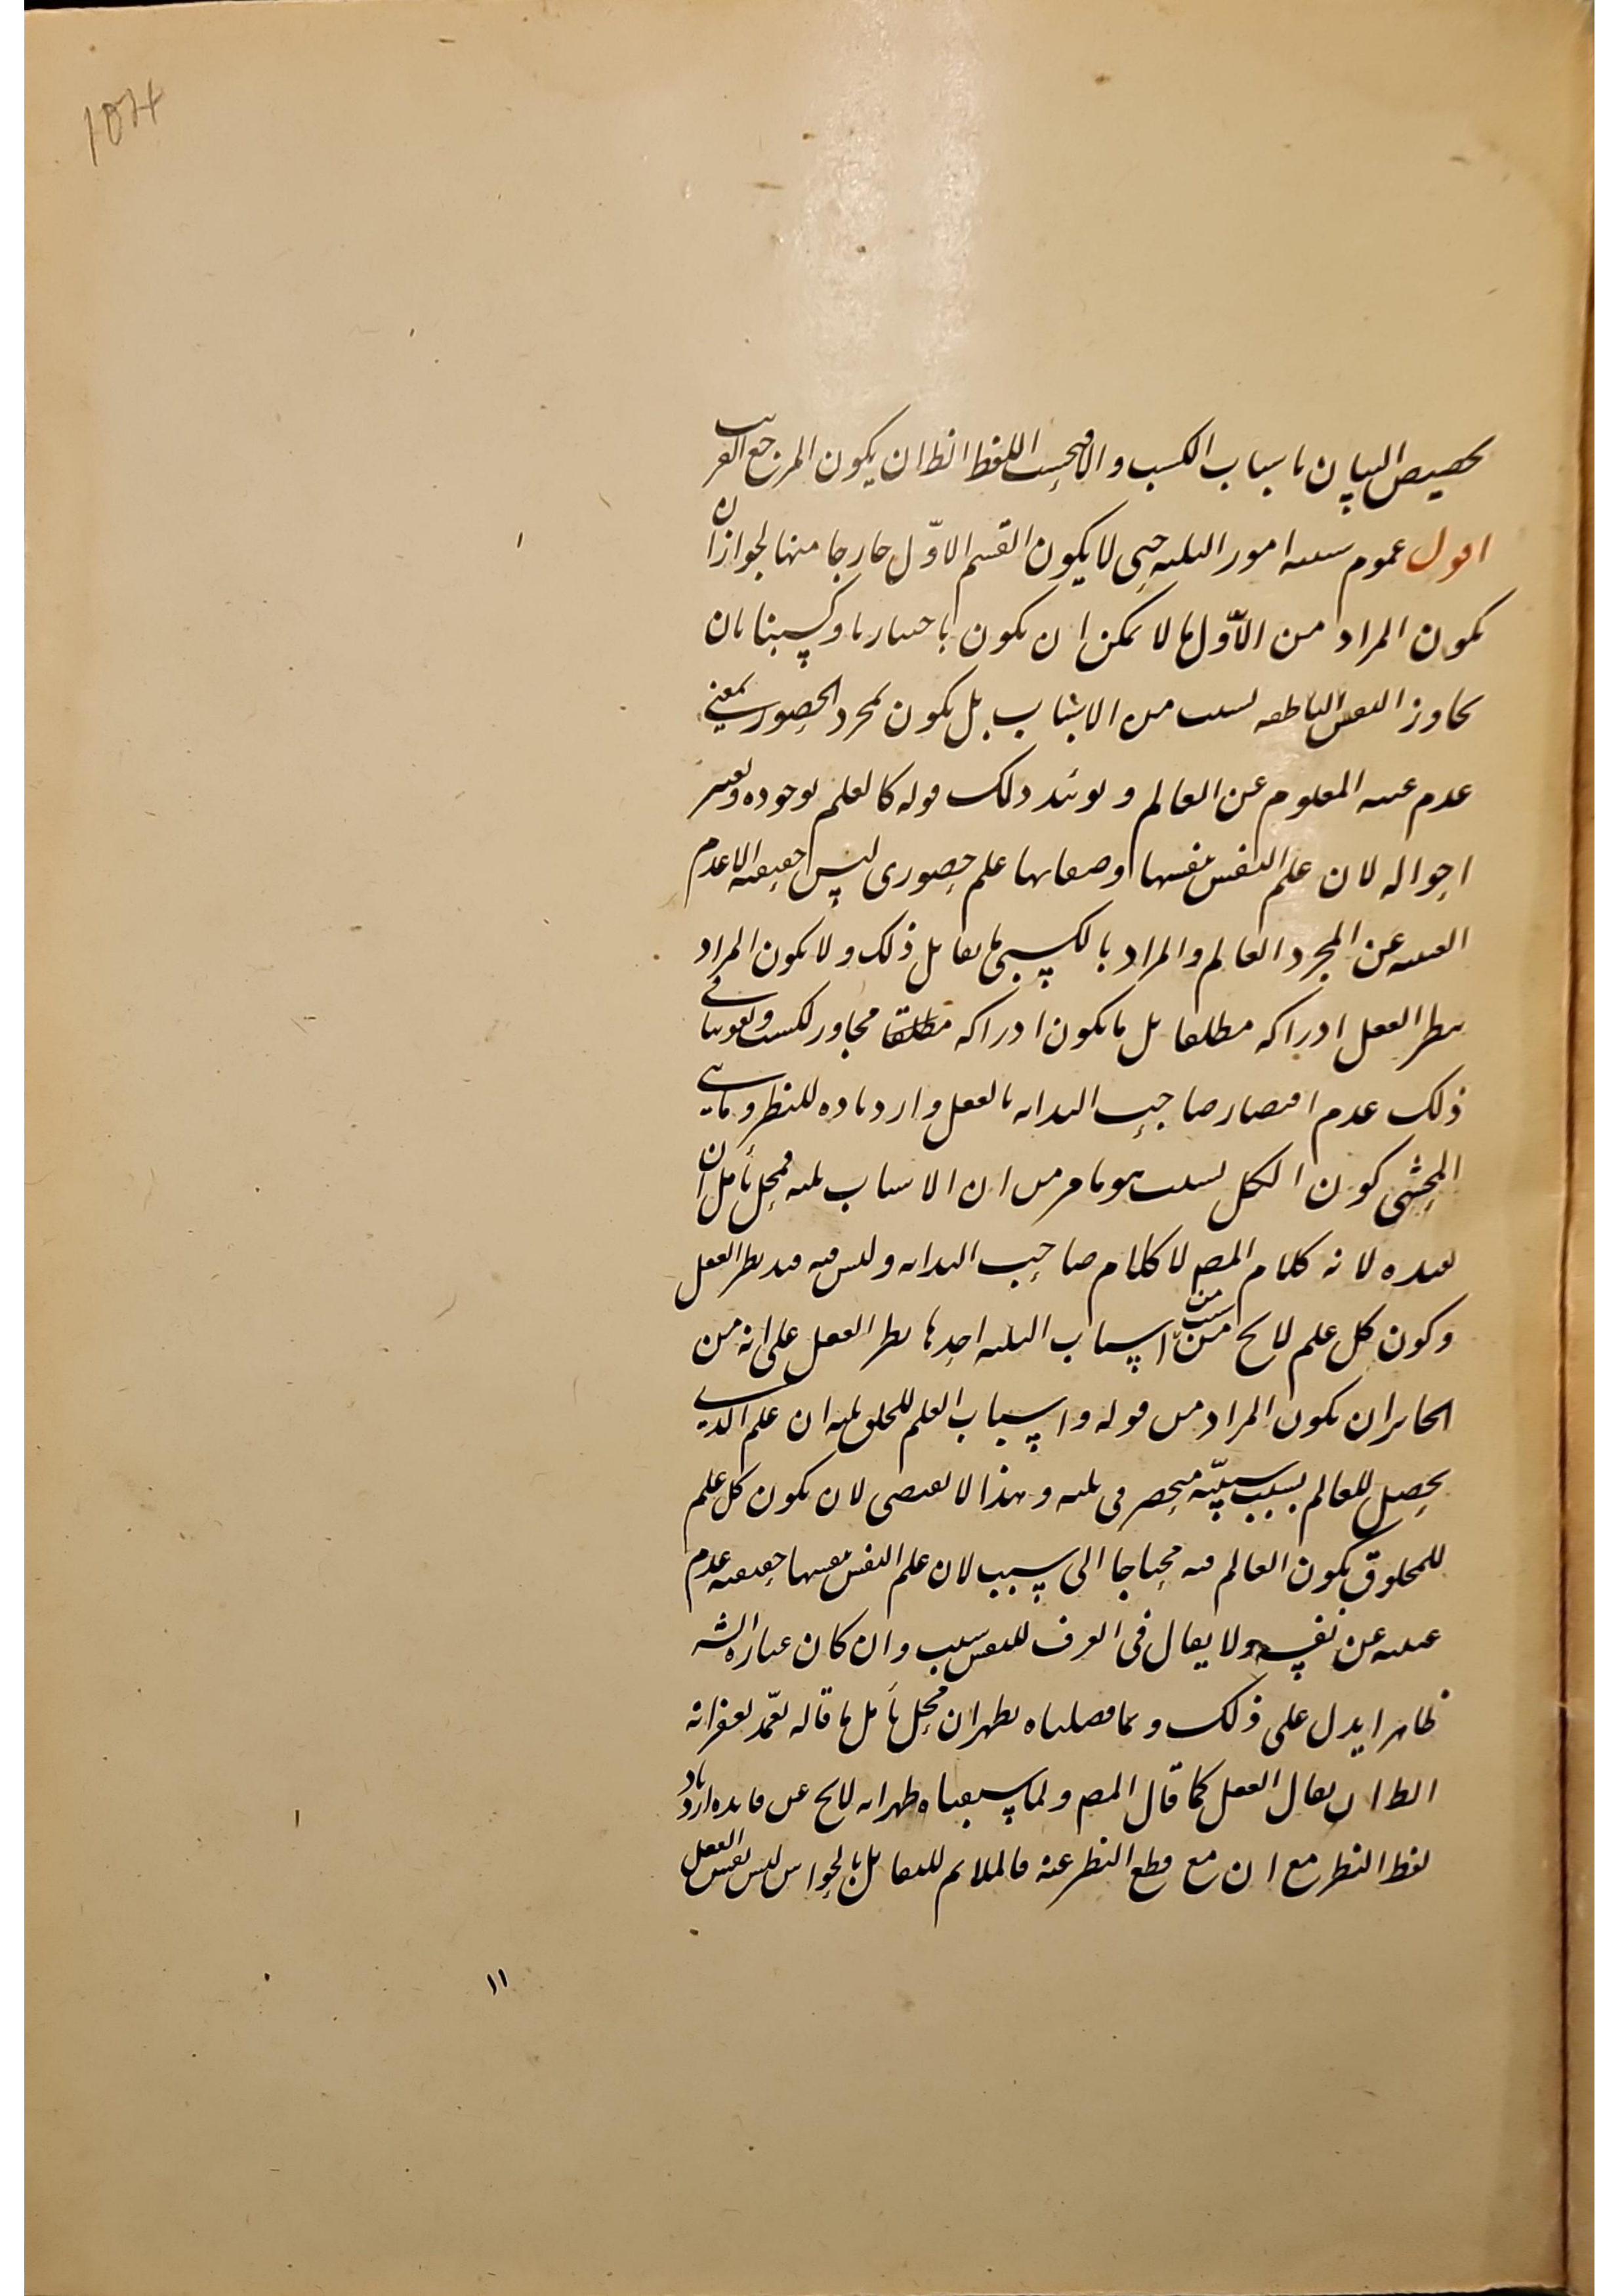 1074
تخصيص البيان باسباب الكسب والا فبحسب اللفظ الظ ان يكون المرجع القريب
اقول عموم سببيه امور الثلثه حتى لا يكون القسم الاوّل خارجا منها لجواز ان
يكون المراد من الاوّل ما لا يمكن ان يكون باختيارنا وكسبنا بان
يجاوز النفس الناطقه ليست من الاسباب بل يكون بمجرد الحضور بمعنى
عدم غيبه المعلوم عن العالم ويؤيد ذلك قوله كالعلم بوجوده وتغير
احواله لان علم النفس بنفسها وصفاتها علم حضورى ليس حقيقته الا عدم
الغيبه عن المجرد العالم والمراد بالكسبى ما يقابل ذلك ولا يكون المراد
بنظر العقل ادراكه مطلقا بل ما يكون ادراكه مطلقا مجاور للكسب ولا ينافى
ذلك عدم اقتصار صاحب البدايه بالعقل وازدياده للنظر وما
المحشى كون الكل ليست هو ما مر من ان الاسباب ثلثه فمحل تأمل ان
بعده لانه كلام المص لا كلام صاحب البدايه وليس فيه قيد نظر العقل
وكون كل علم لايح من سبب من اسباب الثلثه احدها نظر العقل على انه من
الجايز ان يكون المراد من قوله واسباب العلم للخلق ثلثه ان علم الذى
يحصل للعالم بسبب سببيّه منحصر فى ثلثه وهذا لا يقتضى لان يكون كل علم
للمخلوق يكون العالم فيه محتاجا الى سبب لان علم النفس بنفسها حقيقته عدم
غيبته عن نفسه ولا يقال فى العرف للنفس سبب وان كان عبارة الشه
ظاهرا يدل على ذلك وبما فصلناه يظهر ان محل تأمل ما قاله تغمّد بغفرانه
الظ ان يقال العقل كما قال المص ولما سبقناه ظهر انه لايح عن فايده ازدياد
لفظ النظر مع ان مع قطع النظر عنه فالملايم للتقابل بالحواس ليس نفس العقل
١١